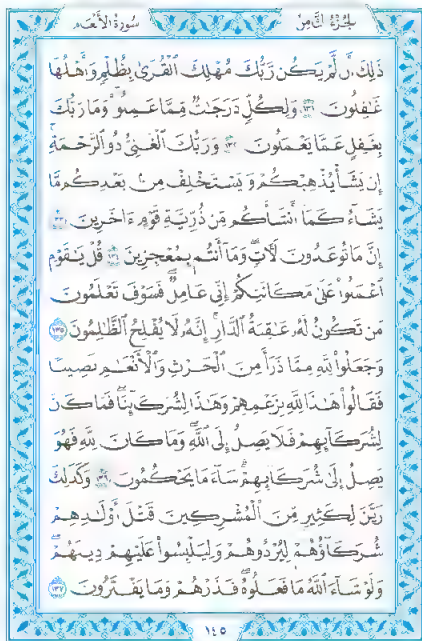 الجزء الثامن
سورة الأنعام
ذَٰلِكَ أَن لَّمْ يَكُن رَّبُّكَ مُهْلِكَ ٱلْقُرَىٰ بِظُلْمٍ وَأَهْلُهَا
غَٰفِلُونَ ١٣١ وَلِكُلٍّ دَرَجَٰتٌ مِّمَّا عَمِلُوا۟ وَمَا رَبُّكَ
بِغَٰفِلٍ عَمَّا يَعْمَلُونَ ١٣٢ وَرَبُّكَ ٱلْغَنِىُّ ذُو ٱلرَّحْمَةِ
إِن يَشَأْ يُذْهِبْكُمْ وَيَسْتَخْلِفْ مِنۢ بَعْدِكُم مَّا
يَشَآءُ كَمَآ أَنشَأَكُم مِّن ذُرِّيَّةِ قَوْمٍ ءَاخَرِينَ ١٣٣
إِنَّ مَا تُوعَدُونَ لَءَاتٍ وَمَآ أَنتُم بِمُعْجِزِينَ ١٣٤ قُلْ يَٰقَوْمِ
ٱعْمَلُوا۟ عَلَىٰ مَكَانَتِكُمْ إِنِّى عَامِلٌ فَسَوْفَ تَعْلَمُونَ
مَن تَكُونُ لَهُۥ عَٰقِبَةُ ٱلدَّارِ إِنَّهُۥ لَا يُفْلِحُ ٱلظَّٰلِمُونَ ١٣٥
وَجَعَلُوا۟ لِلَّهِ مِمَّا ذَرَأَ مِنَ ٱلْحَرْثِ وَٱلْأَنْعَٰمِ نَصِيبًا
فَقَالُوا۟ هَٰذَا لِلَّهِ بِزَعْمِهِمْ وَهَٰذَا لِشُرَكَآئِنَا فَمَا كَانَ
لِشُرَكَآئِهِمْ فَلَا يَصِلُ إِلَى ٱللَّهِ وَمَا كَانَ لِلَّهِ فَهُوَ
يَصِلُ إِلَىٰ شُرَكَآئِهِمْ سَآءَ مَا يَحْكُمُونَ ١٣٦ وَكَذَٰلِكَ
زَيَّنَ لِكَثِيرٍ مِّنَ ٱلْمُشْرِكِينَ قَتْلَ أَوْلَٰدِهِمْ
شُرَكَآؤُهُمْ لِيُرْدُوهُمْ وَلِيَلْبِسُوا۟ عَلَيْهِمْ دِينَهُمْ
وَلَوْ شَآءَ ٱللَّهُ مَا فَعَلُوهُ فَذَرْهُمْ وَمَا يَفْتَرُونَ ١٣٧
١٤٥